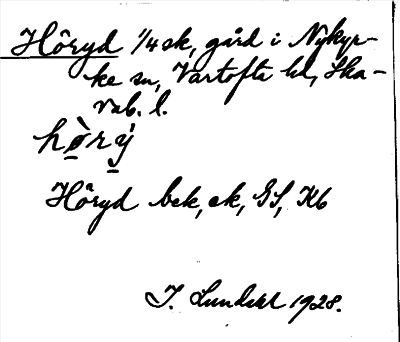 Höryd 1/4 sk, gård i Nykyr-
ke sn, Vartofta hd, Ska-
rab. l.
hø̀rý
Höryd bck, ek, GS, Kb
I. Lundahl 1928.